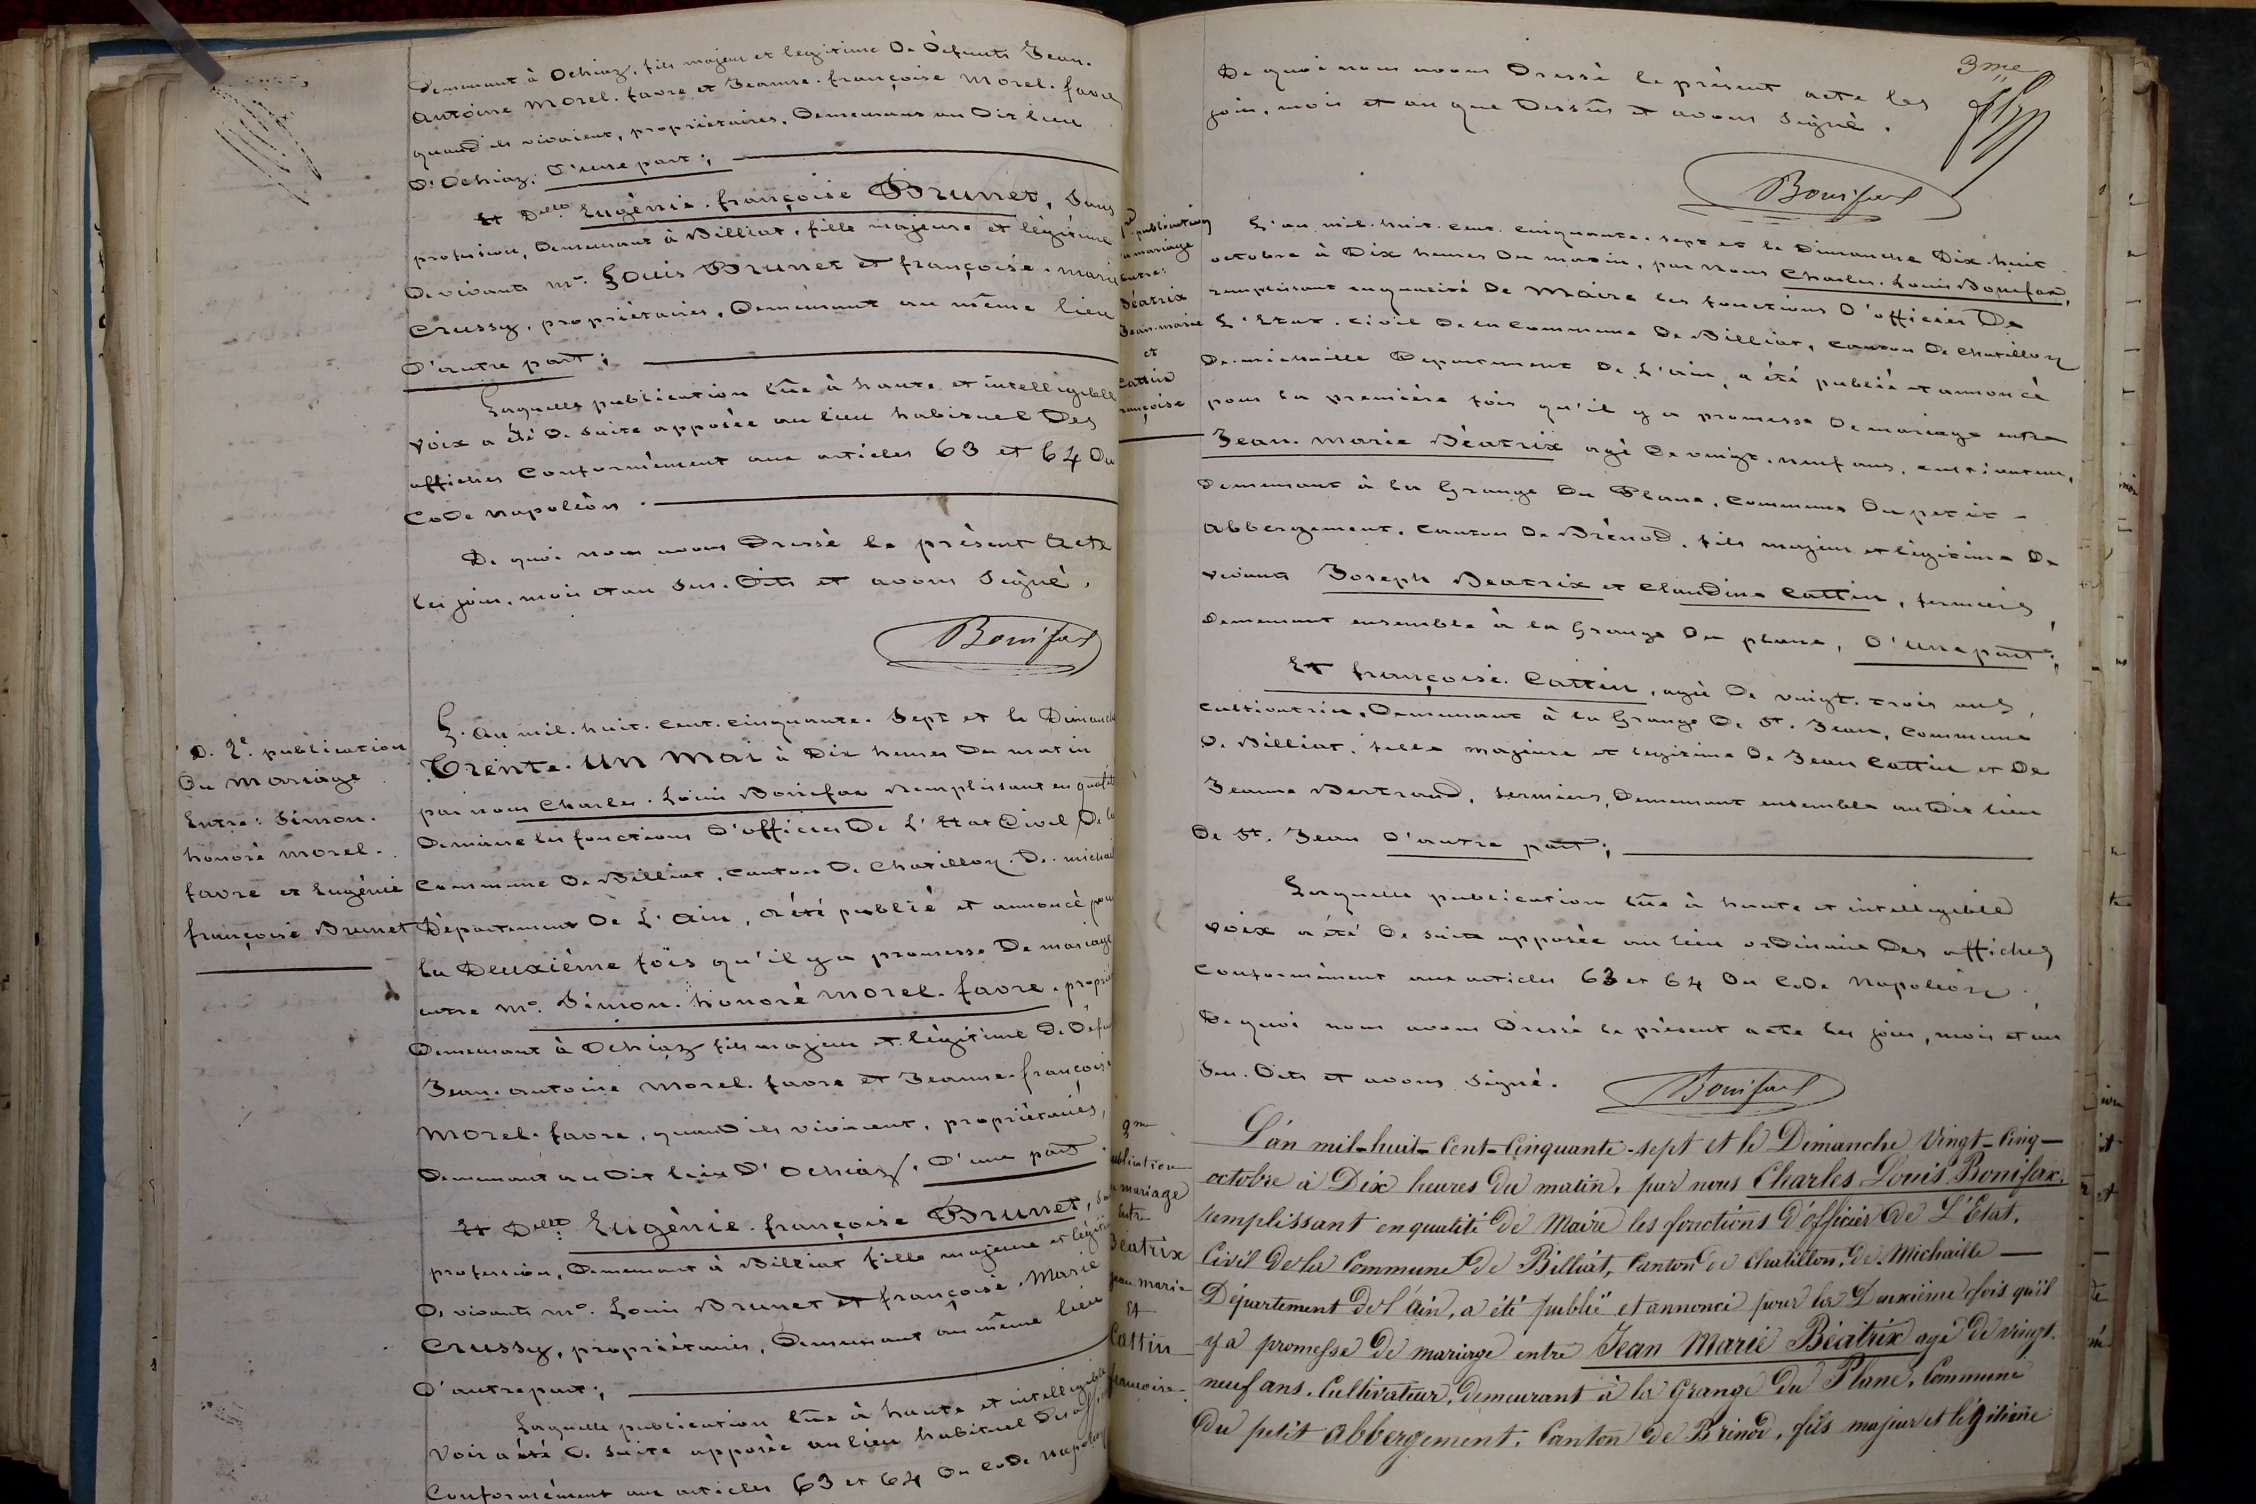 Demeurant à Ochiaz, fils majeur et légitime De Défunts Jean.
antoine Morel. favre et Jeanne. françoise Morel. favre
quand ils vivaient, propriétaires, Demeurant au Dit lieu
D'Ochiaz; D'une part;
Et Delle Eugénie. françoise Brunet, Sans
profession, Demeurant à Billiat, fille majeure et légitime
De vivants mr. Louis Brunet et françoise. Marie
Crussy, propriétaires, Demeurant au même lieu
D'autre part;
Laquelle publication lûe à haute et intelligible
voix a été De suite apposée au lieu habituel Des
affiches Conformément aux articles 63 et 64 Du
Code napoléon.
De quoi nous avons Dressé le présent Acte
les jour, mois et an sus. Dits et avons Signé.
Bonifax
D. 2e. publication
Du mariage
Entre: Simon.
honoré morel.
favre et Eugénie
françoise Brunet
L'an mil. huit. cent. cinquante. Sept et le Dimanche
Trente. Un Mai à Dix heures Du matin
par nous Charles. Louis Bonifax Remplissant en qualité
De maire les fonctions D'officier De L'Etat Civil De la
Commune De Billiat, canton De Chatillon. De. michai
Département De L'Ain, a été publié et annoncé pour
la Deuxième fois qu'il y a promesse De mariage
entre mr. Simon. honoré morel. favre. proprié
Demeurant à Ochiaz fils majeur et légitime De Défu
Jean. antoine Morel. favre et Jeanne. françoise
Morel. favre, quand ils vivaient, propriétaires,
Demeurant au Dit lieu D'Ochiaz, D'une part
Et Delle Eugénie. françoise Brunet, sa
profession, Demeurant à Billiat fille majeure et légiti
De vivants mr. Louis Brunet et françoise. Marie
Crussy, propriétaires, Demeurant au même lieu
D'autre part;
Laquelle publication lûe à haute et intelligible
Voix a été De suite apposée au lieu habituel Des aff
Conformément aux articles 63 et 64 Du Code Napoléon
3me
De quoi nous avons Dressé le présent acte les
jour, mois et an que Dessus et avons Signé.
Bonifax
publication
mariage
Entre:
Béatrix
Jean. marie
et
Cattin
rançoise
L'an mil. huit. cent. cinquante. sept et le Dimanche Dix. huit
octobre à Dix heures Du matin, par nous Charles. Louis Bonifax,
remplissant en qualité De Maire les fonctions D'officier De
L'Etat. civil De la Commune De Billiat, canton De Chatillon
De. michaille Département De L'Ain, a été publié et annoncé
pour la première fois qu'il y a promesse De mariage entre
Jean. Marie Béatrix agé De vingt. neuf ans, cultivateur,
Demeurant à la Grange Du Plane, Commune Du petit
abbergement, canton De Brénod, fils majeur et légitime De
vivants Joseph Beatrix et Claudine Cattin, fermiers
Demeurant ensemble à la Grange Du plane, D'une part;
Et françoise. Cattin, agée De vingt. trois ans,
cultivatrice, Demeurant à la Grange De St. Jean, Commune
De Billiat, fille majeure et légitime De Jean Cattin et De
Jeanne Bertrand, fermiers, Demeurant ensemble au Dit lieu
De St. Jean D'autre part;
Laquelle publication lûe à haute et intelligible
voix a été De suite apposée au lieu ordinaire Des affiches
Conformément aux articles 63 et 64 Du Code Napoléon.
De quoi nous avons Dressé le présent acte les jour, mois et an
Sus. Dits et avons Signé.
Bonifax
2me
ublication
mariage
Entre
Béatrix
jean marie
Et
Cattin
francoise
L'an mil-huit-Cent-Cinquante-sept et le Dimanche Vingt-Cinq
octobre à Dix heures du matin, par nous Charles Louis Bonifax,
remplissant en qualité de Maire les fonctions D'officier de L'Etat.
Civil de la Commune de Billiat, Canton de Chatillon, de Michaille
Département de l'Ain, a été publié et annoncé pour la Deuxième fois qu'il
y a promesse de mariage entre Jean Marie Béatrix agé de vingt
neuf ans, Cultivateur, demeurant à la Grange du Plane, Commune
Du petit abbergement, Canton de Brénod, fils majeur et légitime